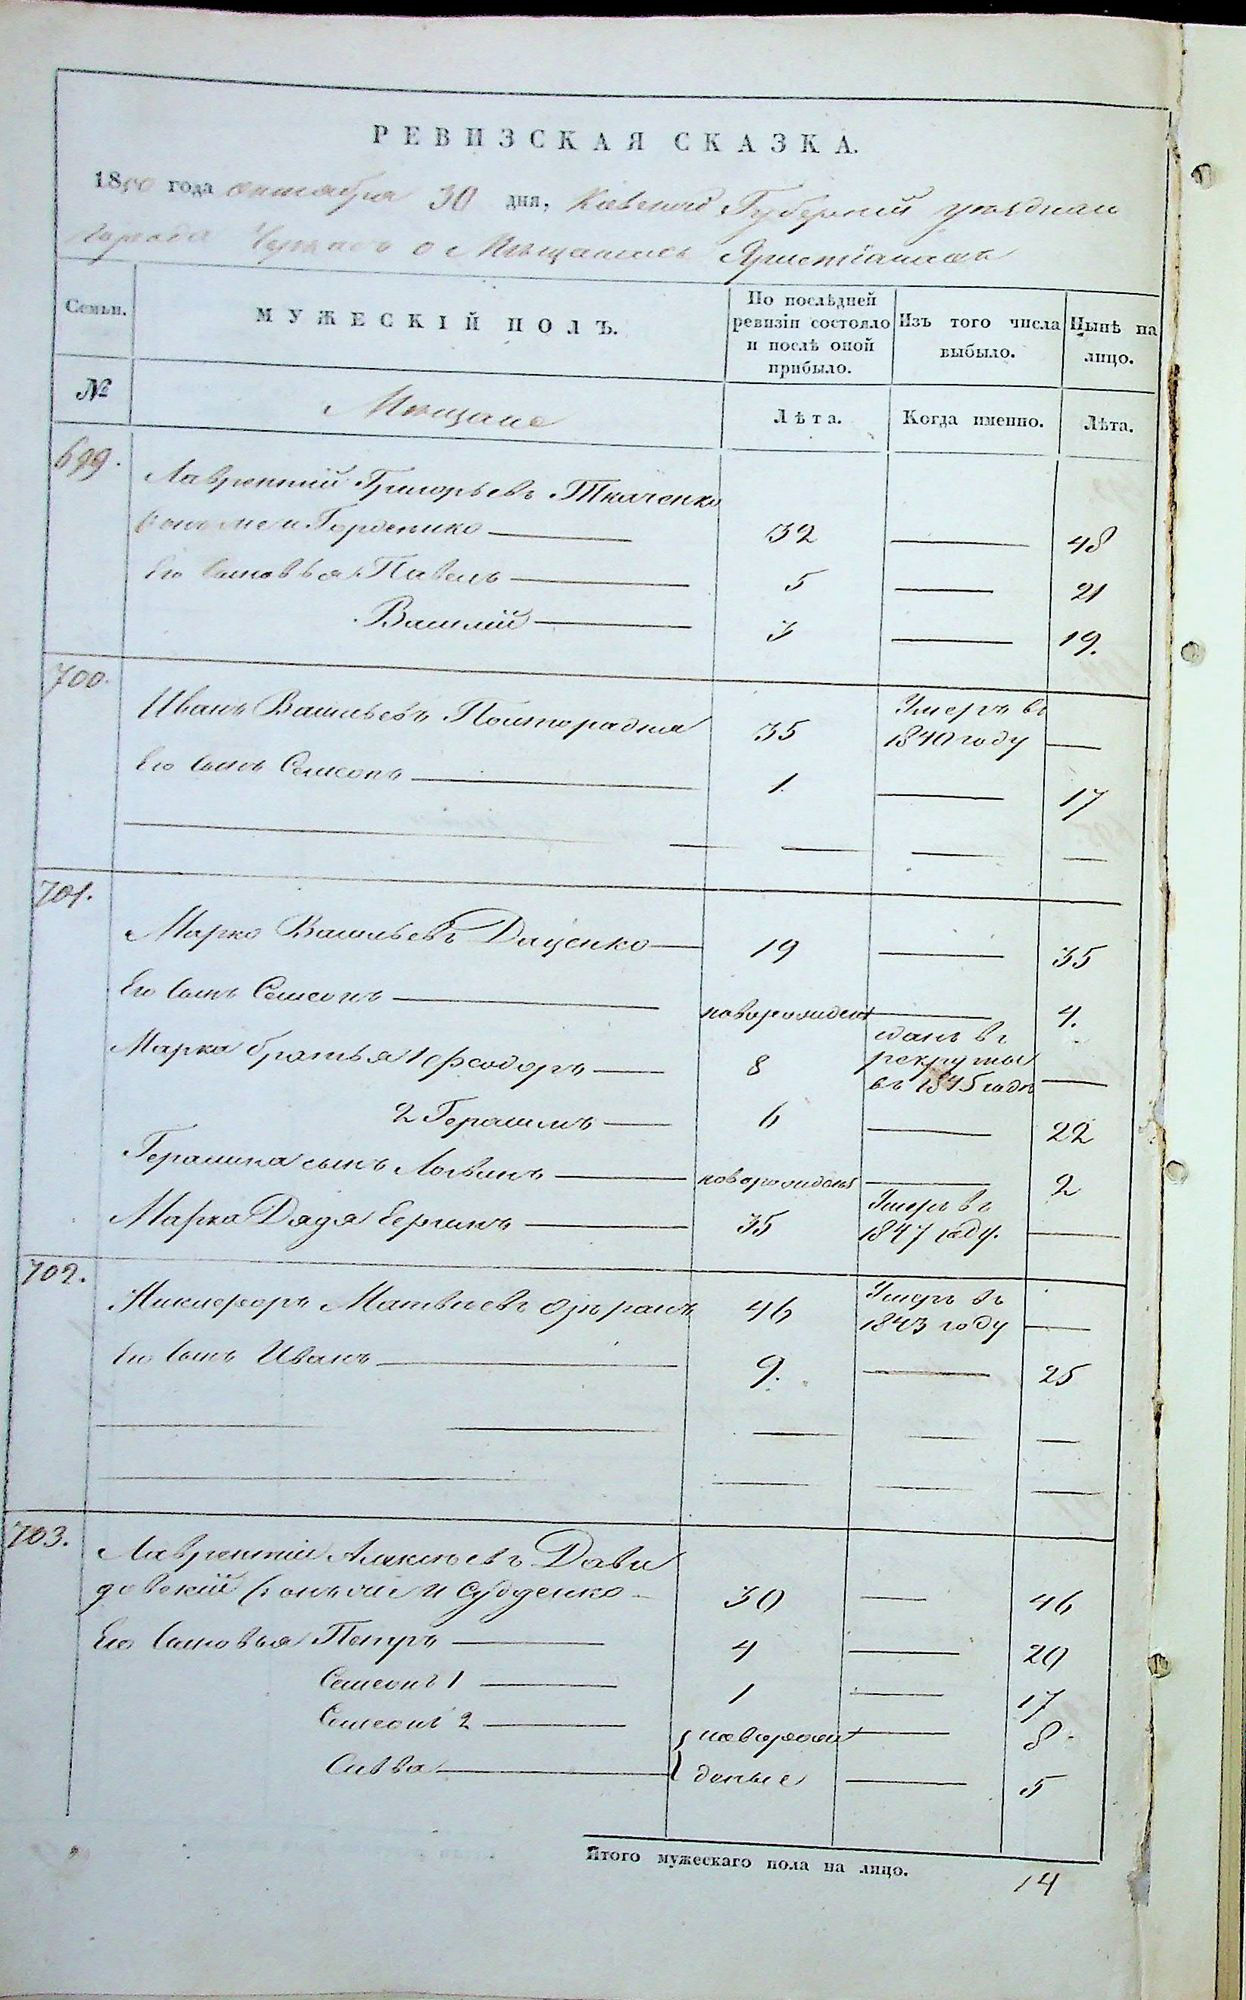 РЕВИЗСКАЯ СКАЗКА.
1850 года октября 30 дня, Кіевской Губерніи уѣзднаго
города Черкасъ о Мѣщанахъ Христіанахъ
Семьи. МУЖЕСКІЙ ПОЛЪ. По послѣдней ревизіи состояло и послѣ оной прибыло. Изъ того числа выбыло. Нынѣ на лицо.
№ Мѣщане Лѣта. Когда именно. Лѣта.
699. Лаврентій Григорьевъ Ткаченко
онъ же и Гордѣенко 32 — 48
Его Сыновья Павелъ 5 — 21
Василій 3 — 19.
700. Иванъ Васильевъ Полторадня 35 Умеръ въ 1840 году —
Его Сынъ Семенъ 1. — 17
701. Марко Васильевъ Даценко 19 — 35
Его Сынъ Семенъ новорожденъ — 4.
Марка братья 1 Феодоръ 8 сданъ въ рекруты въ 1845 годѣ —
2 Герасимъ 6 — 22
Герасима сынъ Логвинъ новорожденъ — 2
Марка Дядя 35 Умеръ въ 1847 году. —
702. Никифоръ Матвѣевъ 46 Умеръ въ 1843 году —
Его Сынъ Иванъ 9. — 25
703. Лаврентій Алексѣевъ Дави
довскій онъ же и 30 — 46
Его Сыновья Петръ 4 — 20
Семенъ 1 1 — 17
Семенъ 2 новорож — 8.
Савва денные — 5
Итого мужескаго пола на лицо. 14